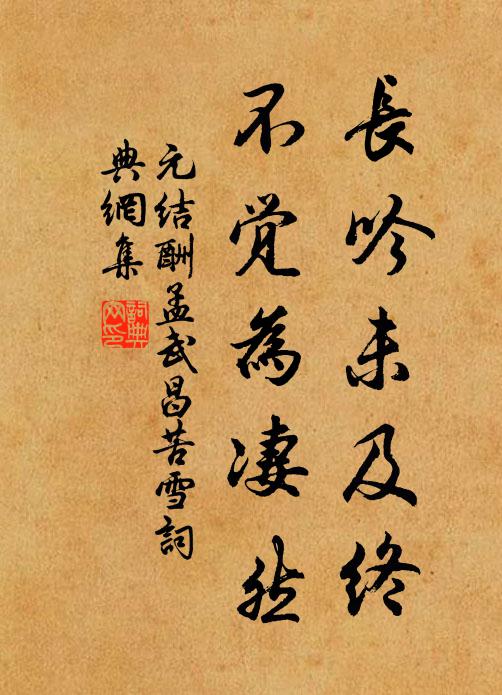 長吟未及終
不覺為淒然
元结酬孟武昌苦雪詞
典網集
詞典
网印